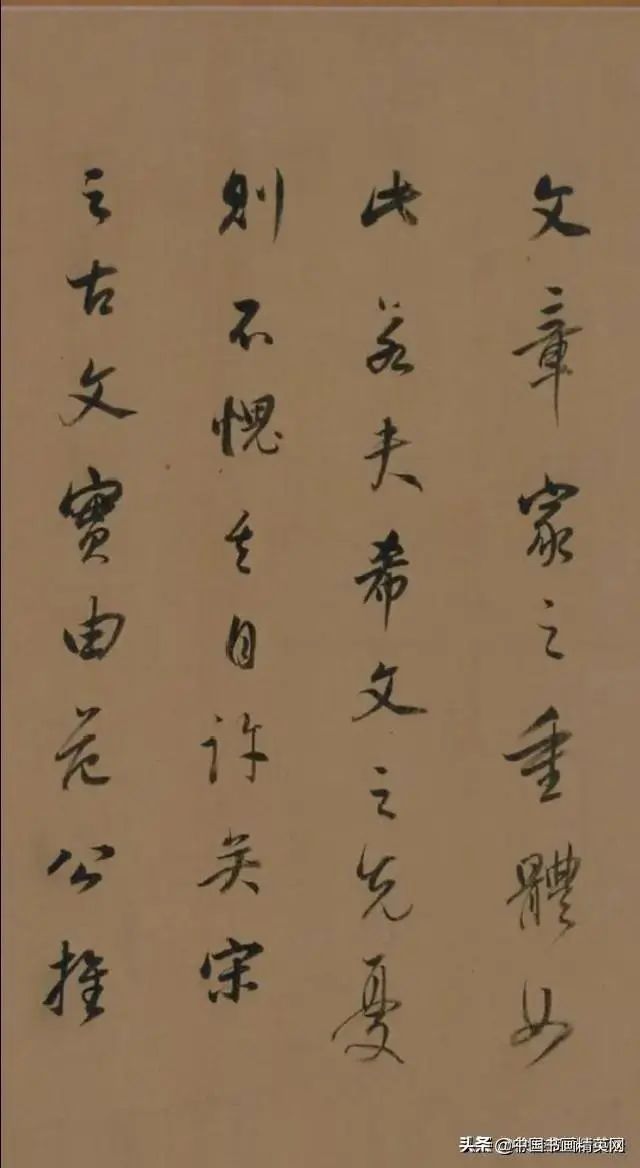 文章家之重體如
此若夫希文之先憂
則不愧其自許矣宋
之古文實由范公推
头条 @中国书画精英网